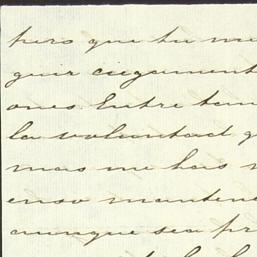 pero que tu me
guir ciegament
ones. Entre tan
la voluntad q
mas me has
enso mantene
aunque sea pr